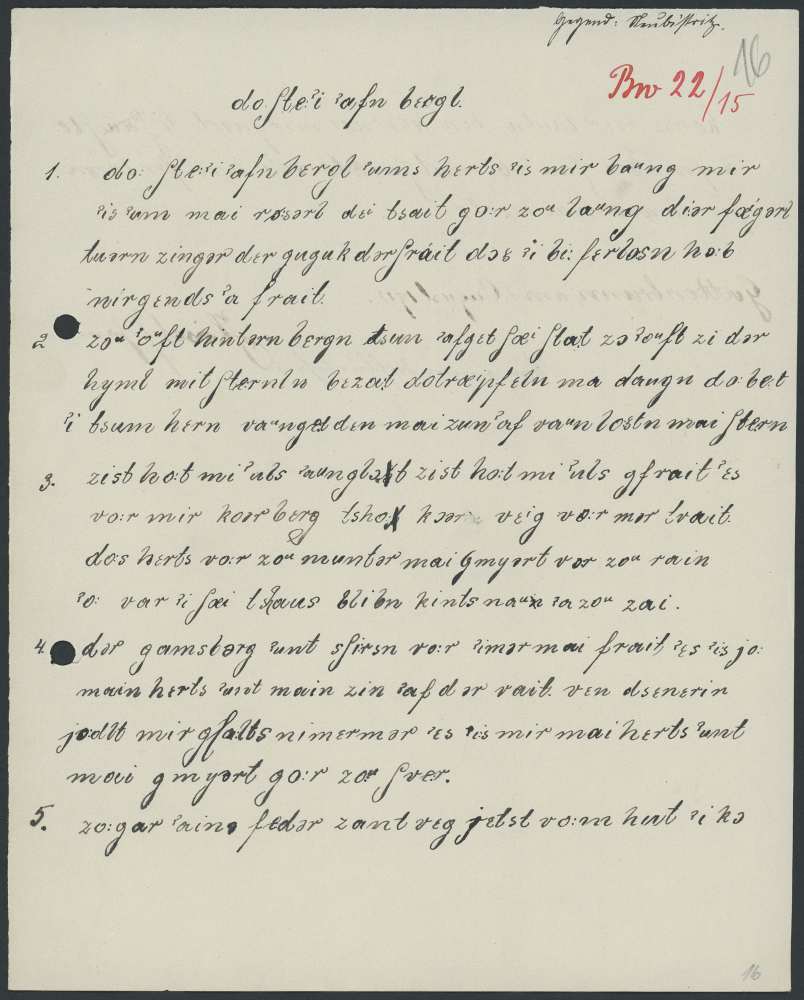 Gegend: Neubistritz.
16
Bw 22/15
do ʃte:ˀi ˀafn bergl.
1. do: ʃte:ˀi ˀafn bɛrgl ˀums herts ˀis mir baᵘng mir
ˀis ˀum mai rɵsərl dei tsait go:r zoᵘ laᵘng diər fœgərl
tuərn zingər dɛr guguk dər ʃráit dɔs ˀi bi: ferlosn hɔ:b
nirgends ˀa frait.
2 zoᵘ ˀoᵘft hintərn bergn tsun ˀafget ʃœi ʃtat zɔ ˀoᵘft zi dər
hyml mit ʃternln bezat dotrœpfeln ma daugn do: be:t
ˀi tsum hern vaᵘngetden mai zun ˀaf vaᵘn lostn mai ʃtern
3. zist ho:t mi ˀuls ˀaᵘnglɔxt zist ho:t mi ˀuls gfrait ˀɛs
vo:r mir koər berg tsho:x kɔər veig vo:r mər tvait.
do:s hɛrts vo:r zoᵘ muntər mai gmyərt vor zoᵘ rain
ˀo: var ˀi ʃœi tshaus blibn kints naᵘx ˀa zoᵘ zai.
4. dər gamsberg ˀunt sʃirsn vo:r ˀimər mai frait ˀɛs ˀis jo:
main herts ˀunt main zin ˀaf dər vait. ven dsenerin
jodlt mir gʃalts nimermər ˀɛs ˀis mir mai hɛrts ˀunt
mai gmyərt go:r zoᵘ ʃver.
5. zo:gar ˀainə fedər zant vɛg jetst vo:m hut ˀi kɔ
16